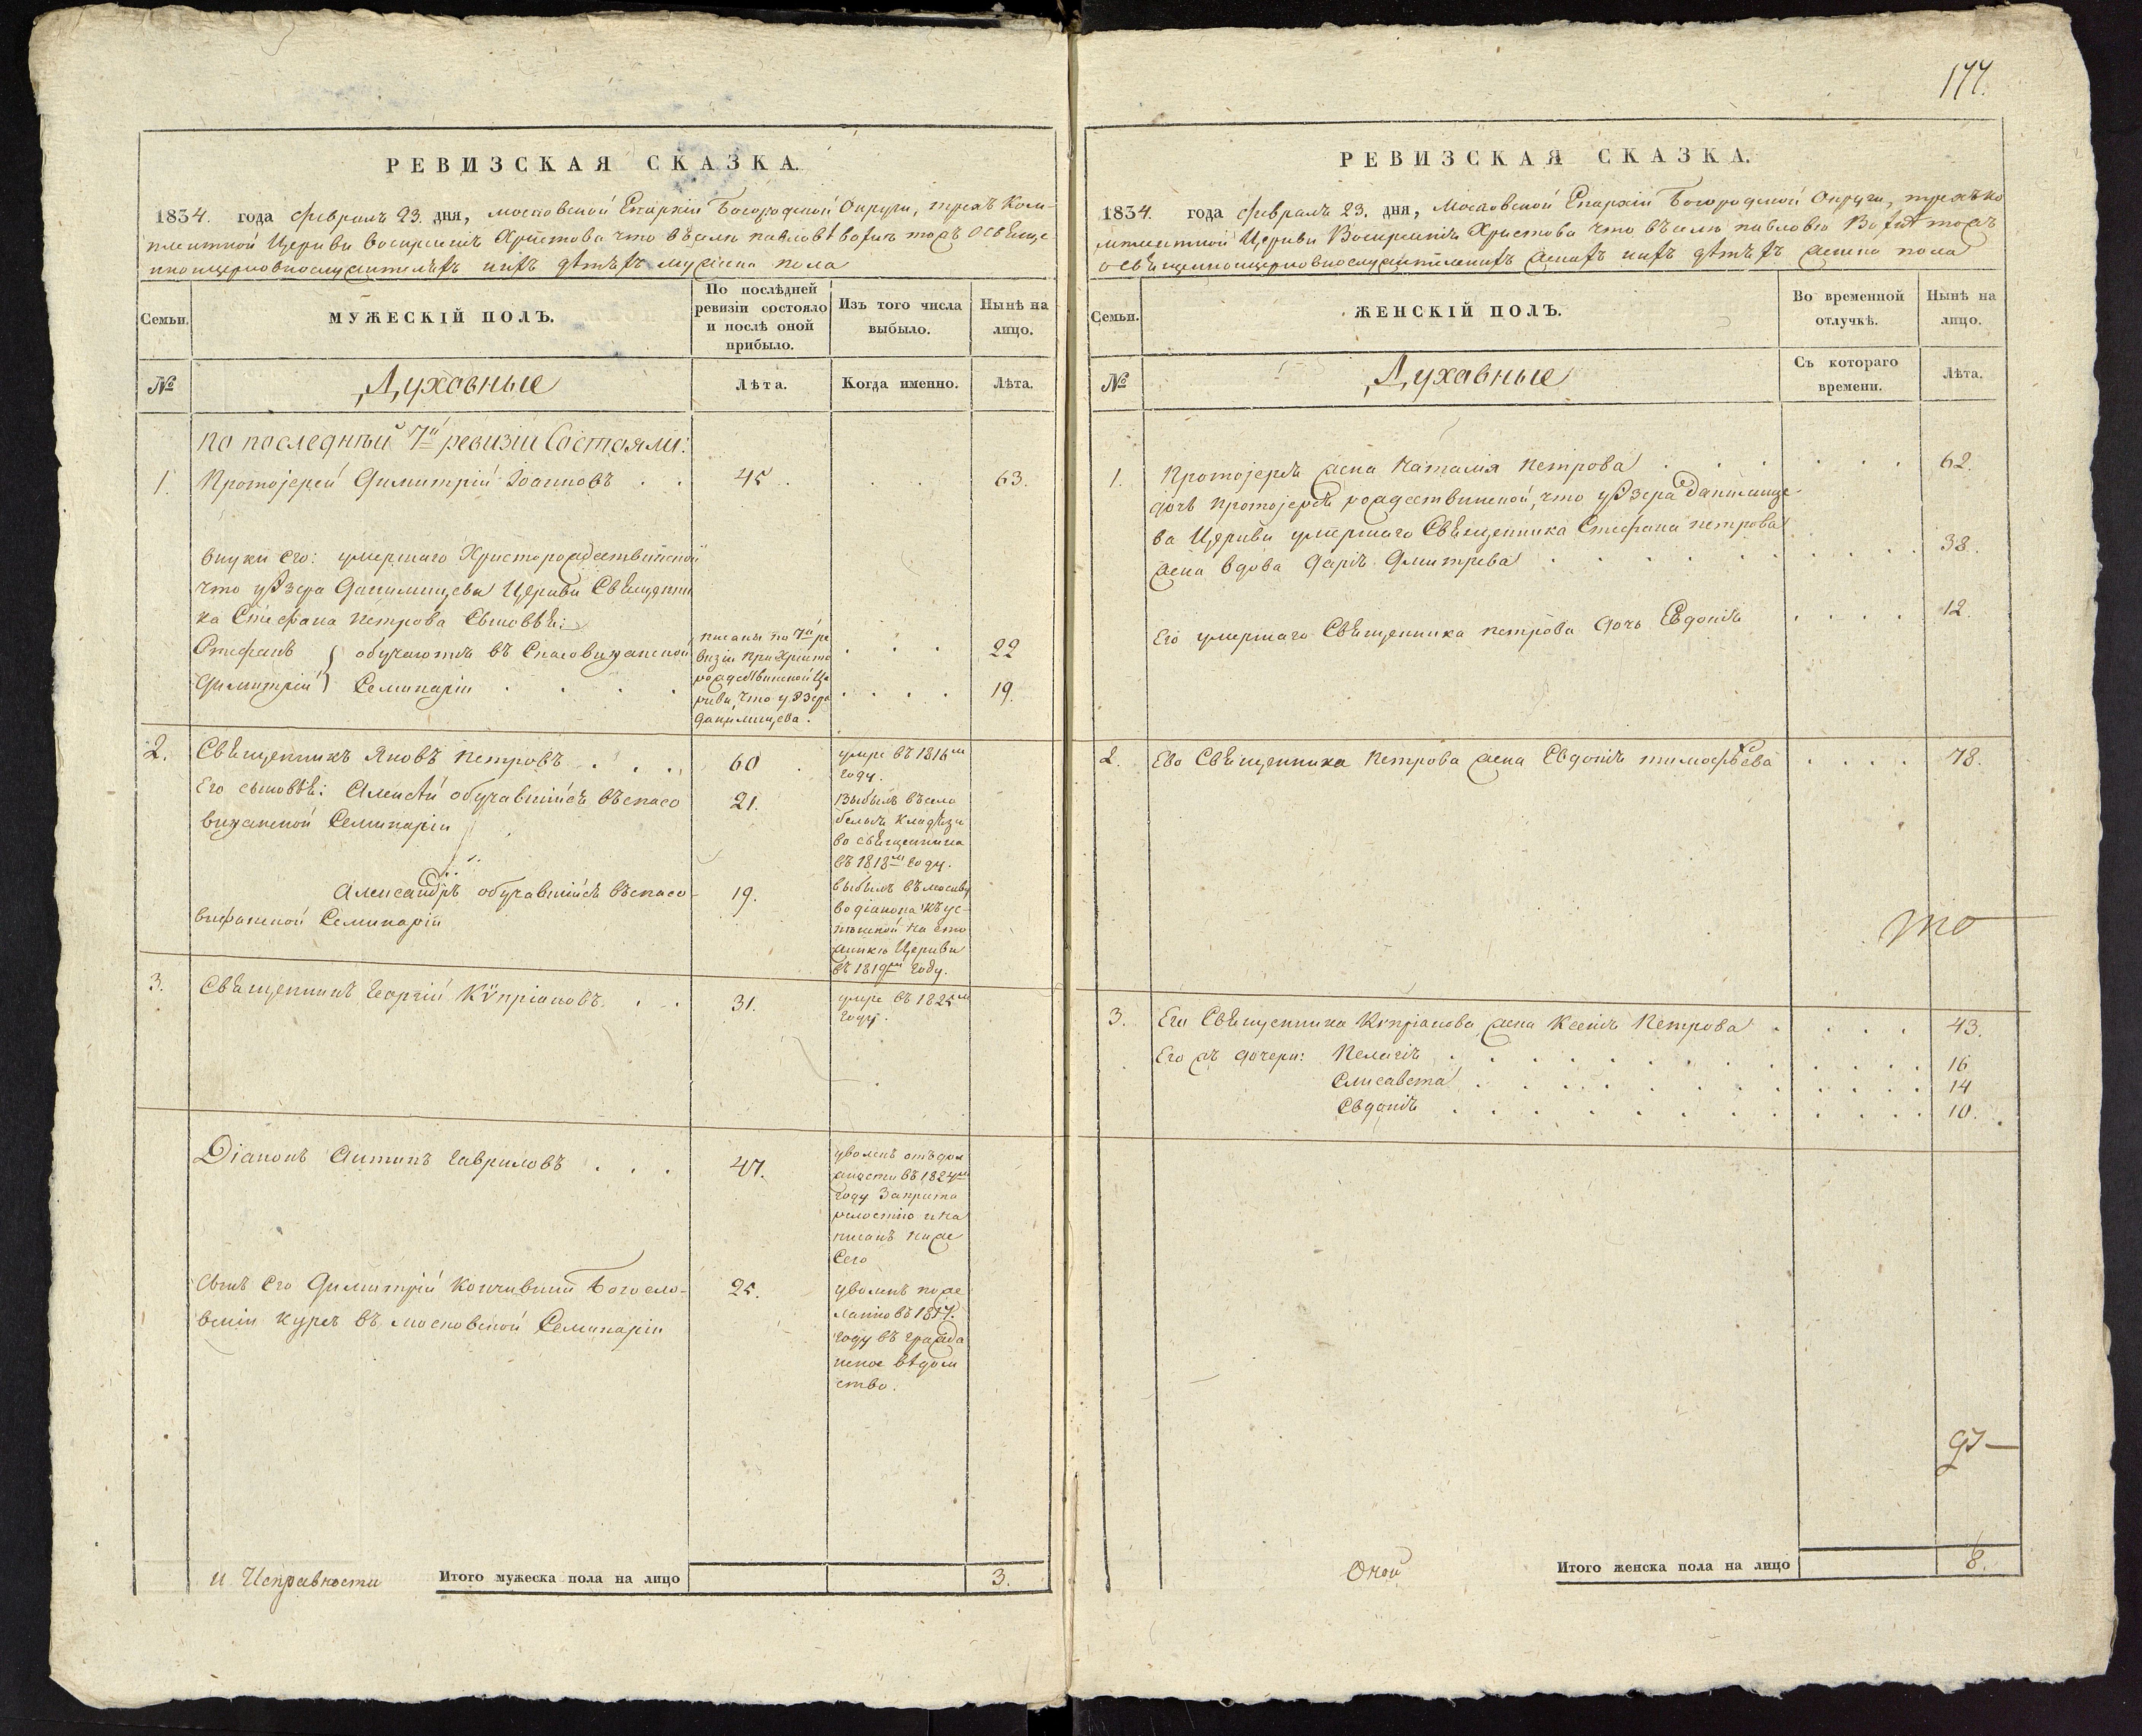 177.
РЕВИЗСКАЯ СКАЗКА.
1834. года февраля 23. дня, московской Епархіи Богородской Округи, трехъ Ком-
плектной Церкви воскресенія Христова что въ селѣ павловѣ вохнѣ тожъ о свѣще
нноцерковнослужителѣхъ ихъ дѣтѣхъ мужеска пола
Семьи.
МУЖЕСКІЙ ПОЛЪ.
По послѣдней
ревизіи состояло
и послѣ оной
прибыло.
Изъ того числа
выбыло.
Нынѣ на
лицо.
№
Духовные
Лѣта.
Когда именно.
Лѣта.
по последней 7й ревизіи Состояли:
1. Протоіерей Димитрій Іоанновъ . . 45 . . . . 63.
внуки его: умершаго Христорождественской
что у Озера Данилищева Церкви Священни
ка Стефана петрова Сыновья:
Стефанъ } обучаются въ Спасовифанской
Димитрій } Семинаріи . . . .
писаны по 7й ре
визіи при Христо
рождественской Це
ркви, что у Озера
данилищева.
. . . 22
. . . . 19.
2. Священникъ Яковъ петровъ . . . . 60 .
умре въ 1816м
году.
Его сыновья: Алексѣй обучавшійся въ спасо
вифанской Семинаріи
21.
Выбылъ въ село
белыя кладези
во священника
въ 1818м году.
Александръ обучавшійся въ спасо-
вифанской Семинаріи
19.
выбылъ въ москву
во діакона къ ус-
пенской на
Церкви
въ 1819м году.
3. Священникъ Георгій Кѵпріановъ . . 31.
умре въ 1825м
году.
Діаконъ Антипъ Гавриловъ . . . 47.
уволенъ отъ дол
жности въ 1824м
году За преста
релостію и на
писанъ ниже
Сего
Сынъ его Димитрій кончившій Богосло-
вскій курсъ въ московской Семинаріи
25.
уволенъ по же
ланію въ 1817.
году въ гражда
нское вѣдом
ство.
и Исправности
Итого мужеска пола на лицо 3.
РЕВИЗСКАЯ СКАЗКА.
1834. года февраля 23. дня, Московской Епархіи Богородской Округи, трехъ ко
мплектной Церкви Воскресенія Христова что въ селѣ павловѣ Вохнѣ тожъ
о священноцерковнослужительскихъ женахъ ихъ дѣтѣхъ женска пола
Семьи.
ЖЕНСКІЙ ПОЛЪ.
Во временной
отлучкѣ.
Нынѣ на
лицо.
№
Духовные
Съ котораго
времени.
Лѣта.
1. Протоіерея жена Наталія петрова . . . . . . . 62.
дочь протоіерея рождественской, что у Озера Данилище-
ва Церкви умершаго Священника Стефана петрова
жена вдова Дарія Дмитрева . . . . . . . . . . 38.
Его умершаго Священника петрова дочь Евдокія . . . . 12.
2. Ево Священника петрова жена Евдокія тимофѣева . . . . 78.
то
3. Его Священника Кипріанова жена Ксенія Петрова . . . . 43.
Его жъ дочери: Пелагія . . . . . . . . . . . 16
Елисавета . . . . . . . . . . . 14
Евдокія . . . . . . . . . . . 10.
Оной
Итого женска пола на лицо 8.